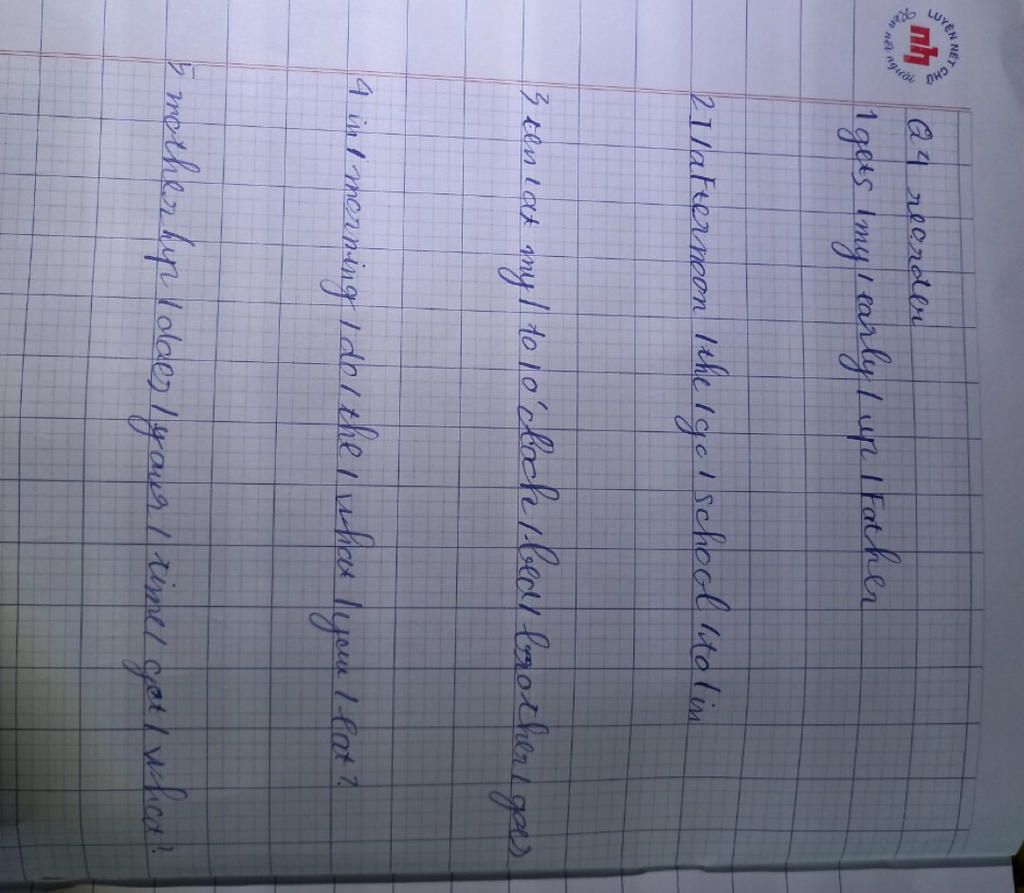 LUYỆN NÉT CHỮ
nh
Rèn nét người
Q4 reorder
1 gets / my / early / up / Father
2 I / aFternoon / the / go / school / to / in
3 ten / at my / to / o'clock / bed / brother / goes
4 in / morning / do / the / what / you / eat?
5 mother / up / does / your / time / get / what?